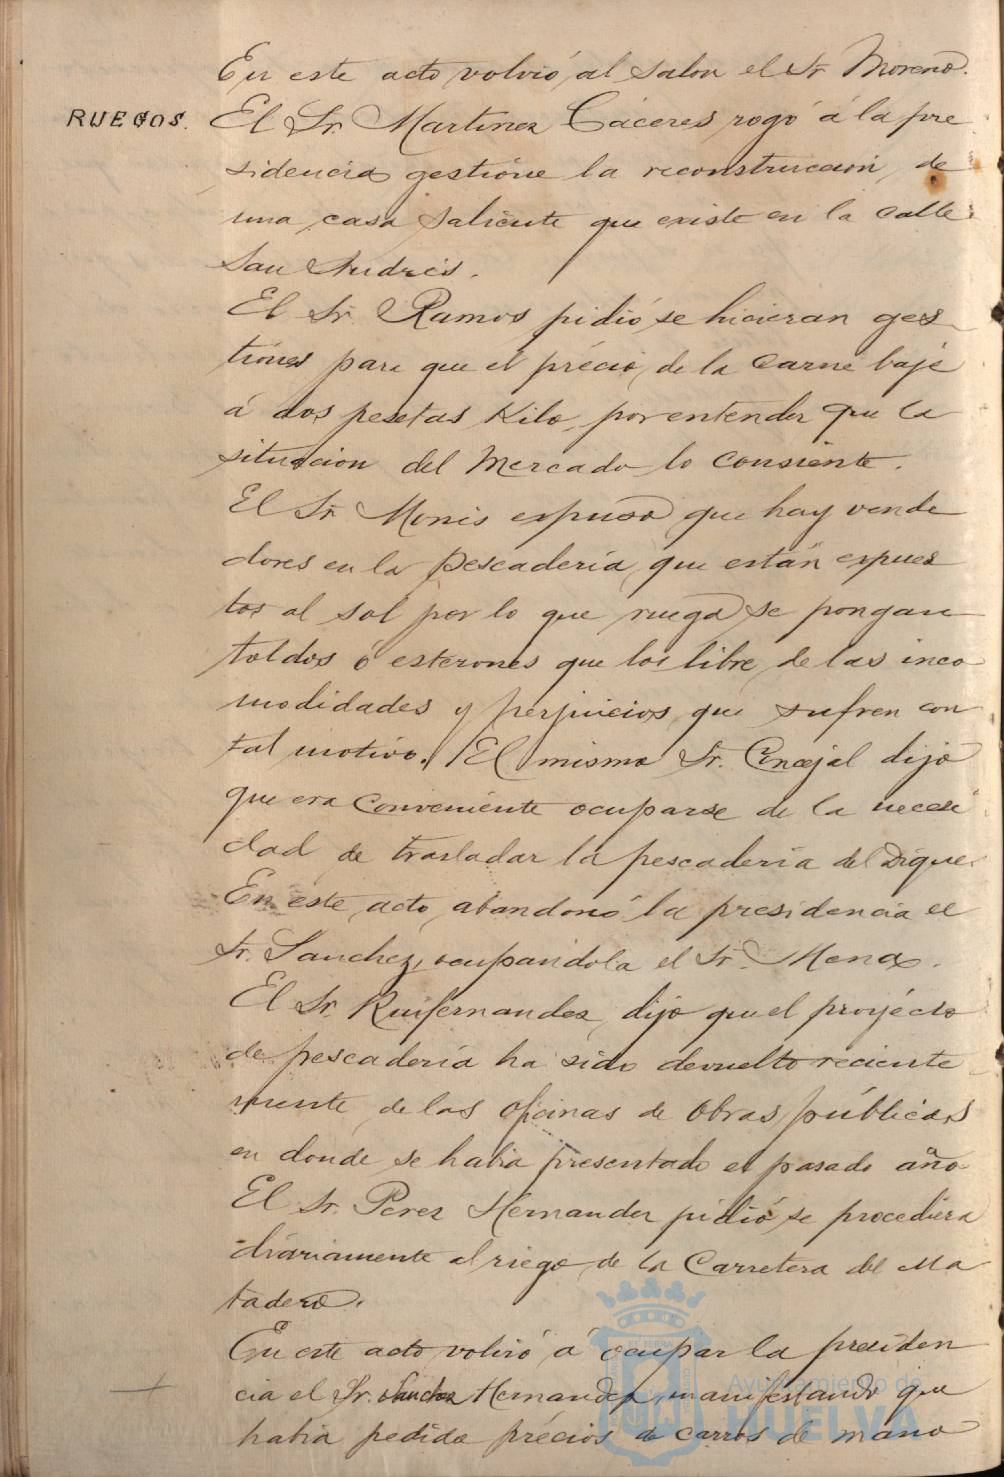 En este acto volvió al salon el Sr Moreno.
RUEGOS.
El Sr. Martinez Cáceres rogó á la pre
sidencia gestione la reconstruccion de
una casa saliente que existe en la calle
San Andrés.
El Sr. Ramos pidió se hicieran ges
tiones para que el précio de la carne baje
á dos pesetas Kilo, por entender que la
situacion del Mercado lo consiente.
El Sr. Monis expuso que hay vende
dores en la Pescadería que están expues
tos al sol por lo que ruega se pongan
toldos ó esterones que los libre de las inco
modidades y perjuicios que sufren con
tal motivo. El mismo Sr. Concejal dijo
que era conveniente ocuparse de la necesi
dad de trasladar la pescadería del Dique.
En este acto abandonó la presidencia el
Sr. Sanchez, ocupandola el Sr. Mena.
El Sr. Ruifernandez dijo que el proyécto
de pescadería ha sido devuelto reciente
mente de las oficinas de Obras públicas
en donde se habia presentado el pasado año
El Sr. Perez Hernandez pidió se procediera
diariamente al riego de la Carretera del Ma
tadero.
En este acto volvió á ocupar la presiden
cia el Sr. Sanchez Hernandez, manifestando que
habia pedido précios de carros de mano
Ayuntamiento de
HUELVA